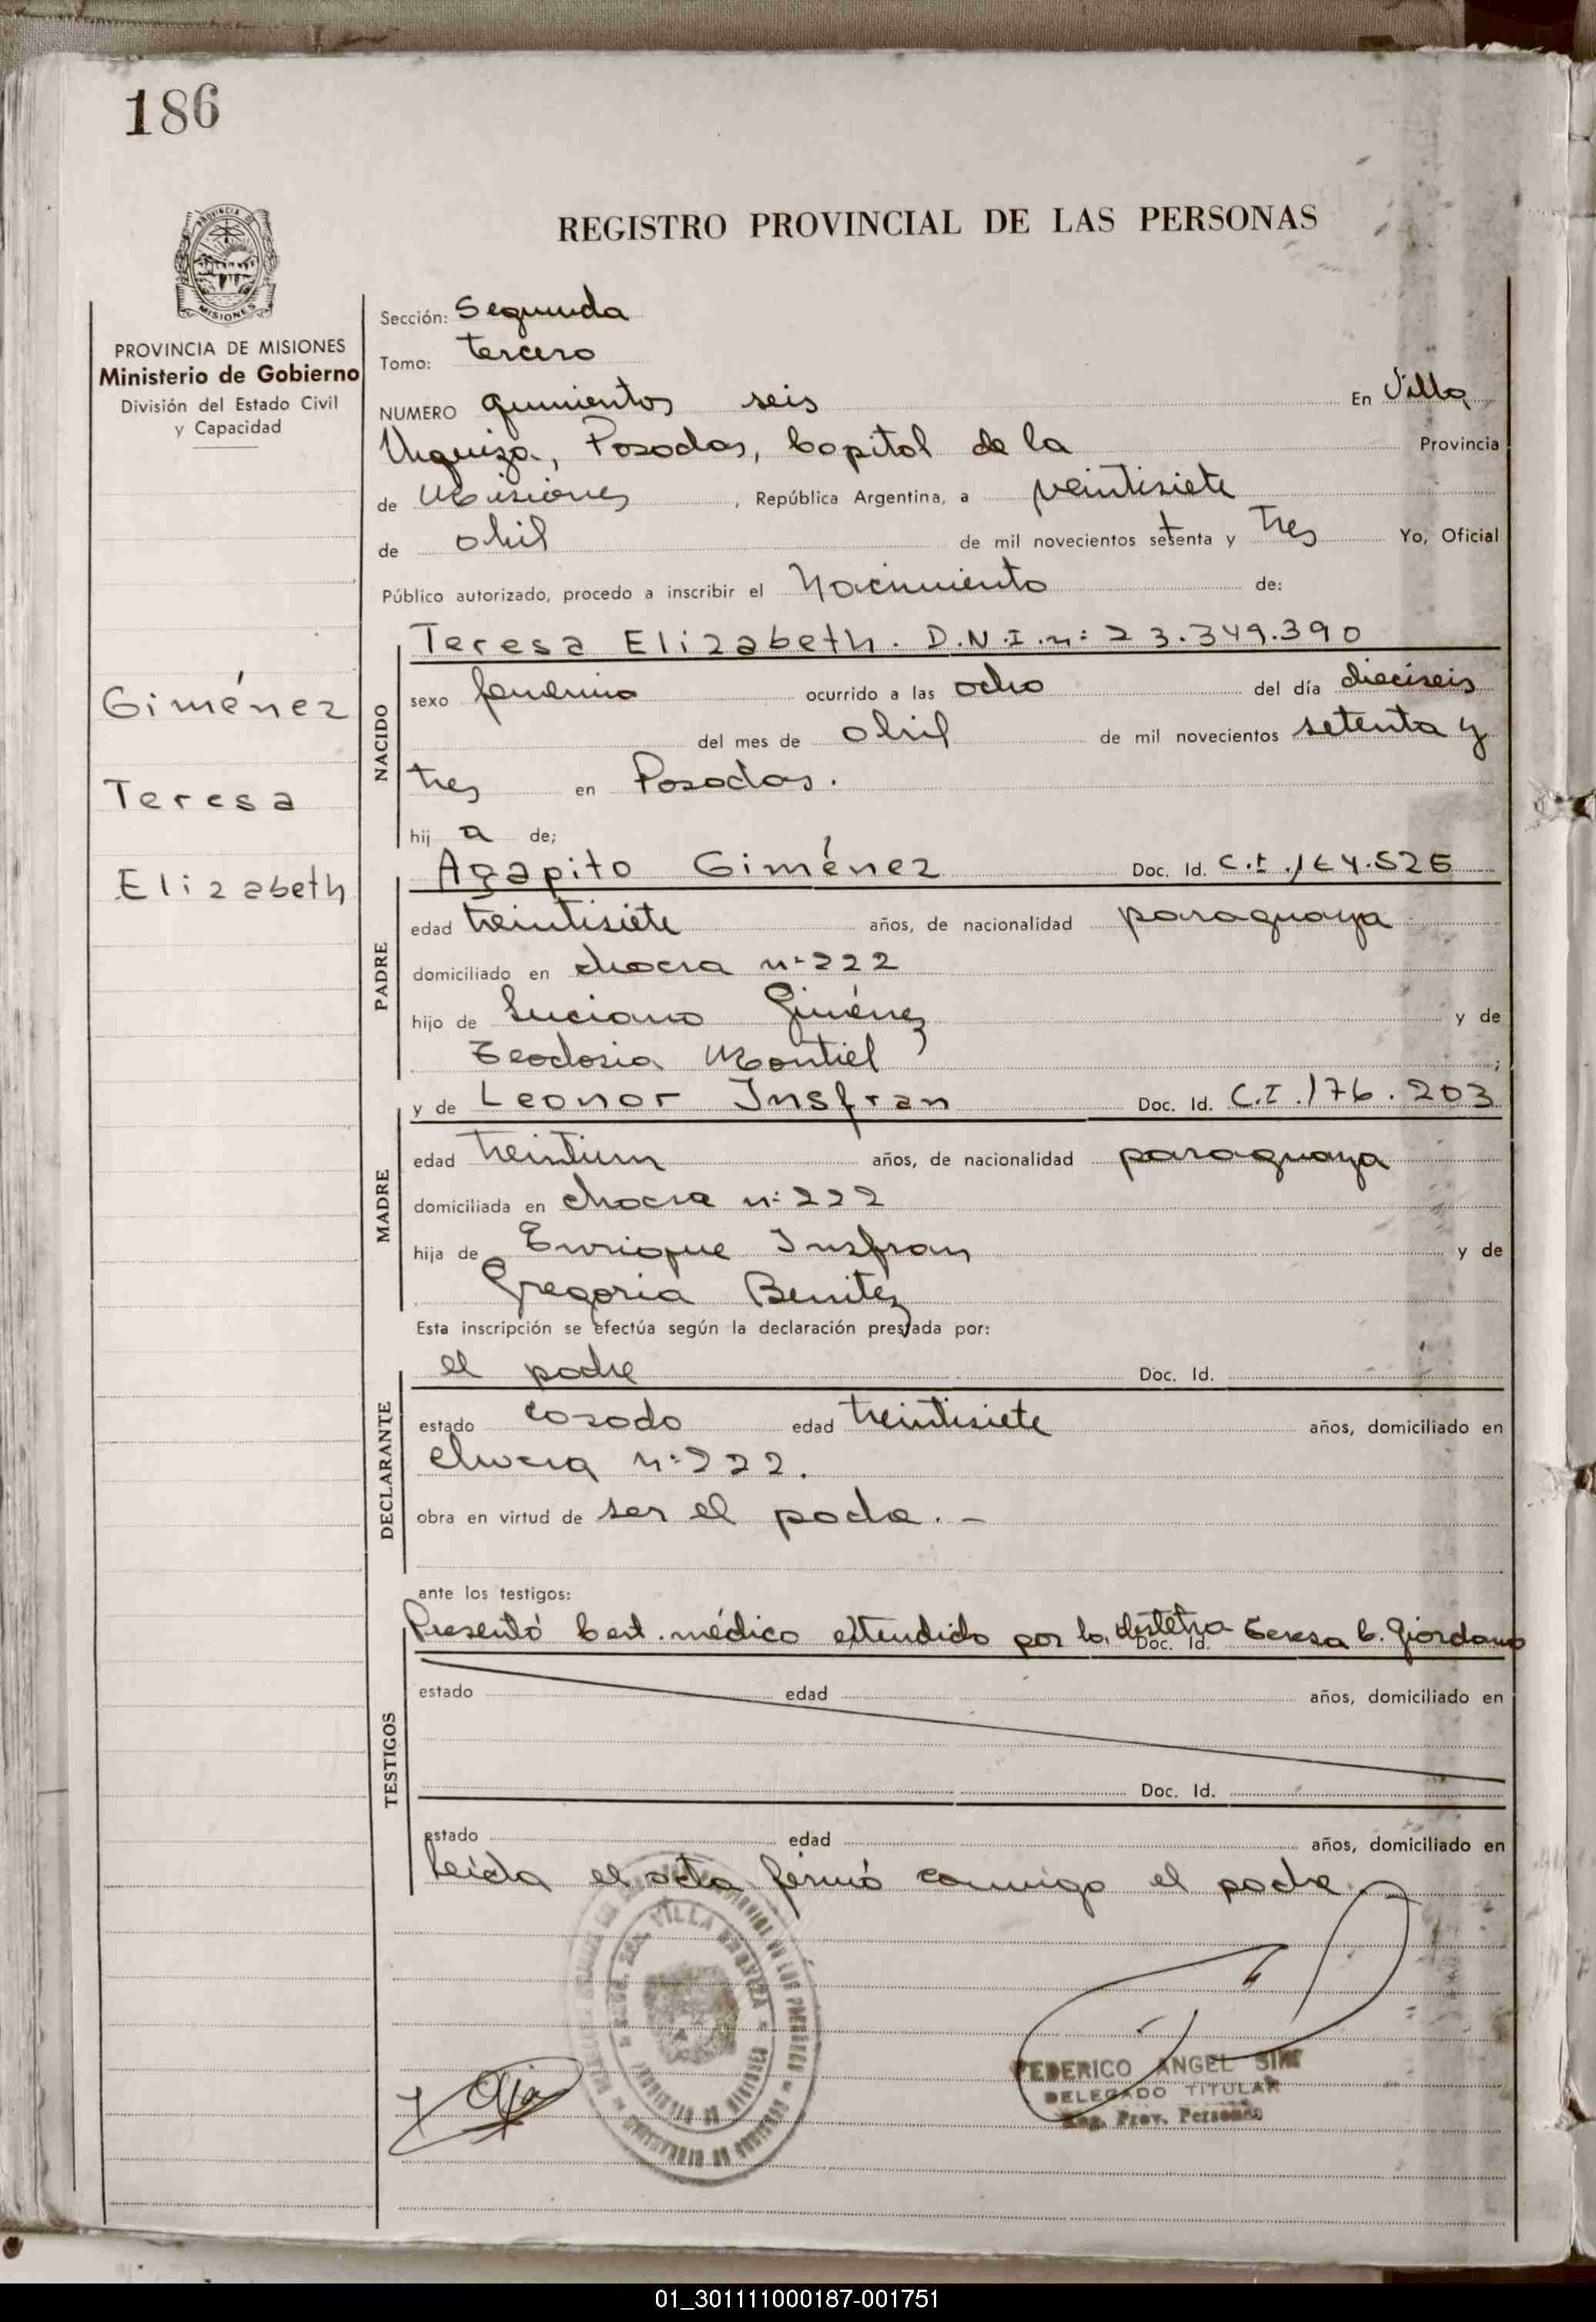 186
REGISTRO PROVINCIAL DE LAS PERSONAS
MISIONES
PROVINCIA DE MISIONES
Ministerio de Gobierno
División del Estado Civil
y Capacidad
Giménez
Teresa
Elizabeth
Sección: Segunda
Tomo: tercero
NUMERO quinientos seis En Villa
Urquiza, Posadas, Capital de la Provincia
de Misiones, República Argentina, a veintisiete
de abril de mil novecientos setenta y tres Yo, Oficial
Público autorizado, procedo a inscribir el Nacimiento de:
NACIDO
Teresa Elizabeth. D.N.I.n: 23.349.390
sexo femenino ocurrido a las ocho del día dieciseis
del mes de abril de mil novecientos setenta y
tres en Posadas.
hij a de;
PADRE
Agapito Giménez Doc. Id. C.I.
edad treintisiete años, de nacionalidad paraguaya
domiciliado en chacra n: 222
hijo de Luciano Giménez y de
Teodosia Montiel ;
MADRE
y de Leonor Insfran Doc. Id. C.I. 176.203
edad treintiun años, de nacionalidad paraguaya
domiciliada en chacra n: 222
hija de Enrique Insfran y de
Gregoria Benitez
Esta inscripción se efectúa según la declaración prestada por:
DECLARANTE
el padre Doc. Id.
estado casado edad treintisiete años, domiciliado en
chacra n: 222.
obra en virtud de ser el padre. -
ante los testigos:
TESTIGOS
Presentó Cert. médico extendido por la obstetra Doc. Id. Teresa C. Giordano
estado edad años, domiciliado en
Doc. Id.
estado edad años, domiciliado en
Leida el acta firmó conmigo el padre.
VILLA URQUIZA
FEDERICO ANGEL
DELEGADO TITULAR
Reg. Prov. Personas
01_301111000187-001751